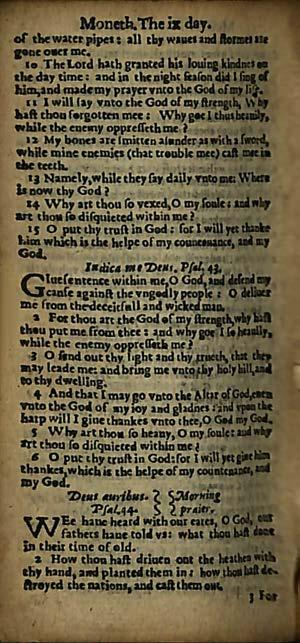 Moneth. The ix day.
of the water pipes: all thy waues and stormes are
gone ouer me.
10 The Lord hath granted his louing kindnes on
the day time: and in the night season did I sing of
him, and made my prayer vnto the God of my life.
11 I will say vnto the God of my strength, Why
hast thou forgotten mee: Why goe I thus heauily,
while the enemy oppresseth me?
12 My bones are smitten asunder as with a sword,
while mine enemies (that trouble mee) cast me in
the teeth.
13 Namely, while they say daily vnto me: Where
is now thy God?
14 Why art thou so vexed, O my soule: and why
art thou so disquieted within me?
15 O put thy trust in God: for I will yet thanke
him which is the helpe of my countenance, and my
God.
Iudica me Deus. Psal. 43.
Giue sentence within me, O God, and defend my
cause against the vngodly people: O deliuer
me from the deceitfull and wicked man.
2 For thou art the God of my strength, why hast
thou put me from thee: and why goe I so heauily,
while the enemy oppresseth me?
3 O send out thy light and thy trueth, that they
may leade me: and bring me vnto thy holy hill, and
to thy dwelling.
4 And that I may go vnto the Altar of God, euen
vnto the God of my ioy and gladnes: and vpon the
harp will I giue thankes vnto thee, O God my God.
5 Why art thou so heauy, O my soule: and why
art thou so disquieted within me?
6 O put thy trust in God: for I will yet giue him
thankes, which is the helpe of my countenance, and
my God.
Deus auribus. Morning
Psal. 44. praier.
WEe haue heard with our eares, O God, our
fathers haue told vs: what thou hast done
in their time of old.
2 How thou hast driuen out the heathen with
thy hand, and planted them in: how thou hast de-
stroyed the nations, and cast them out.
3 For